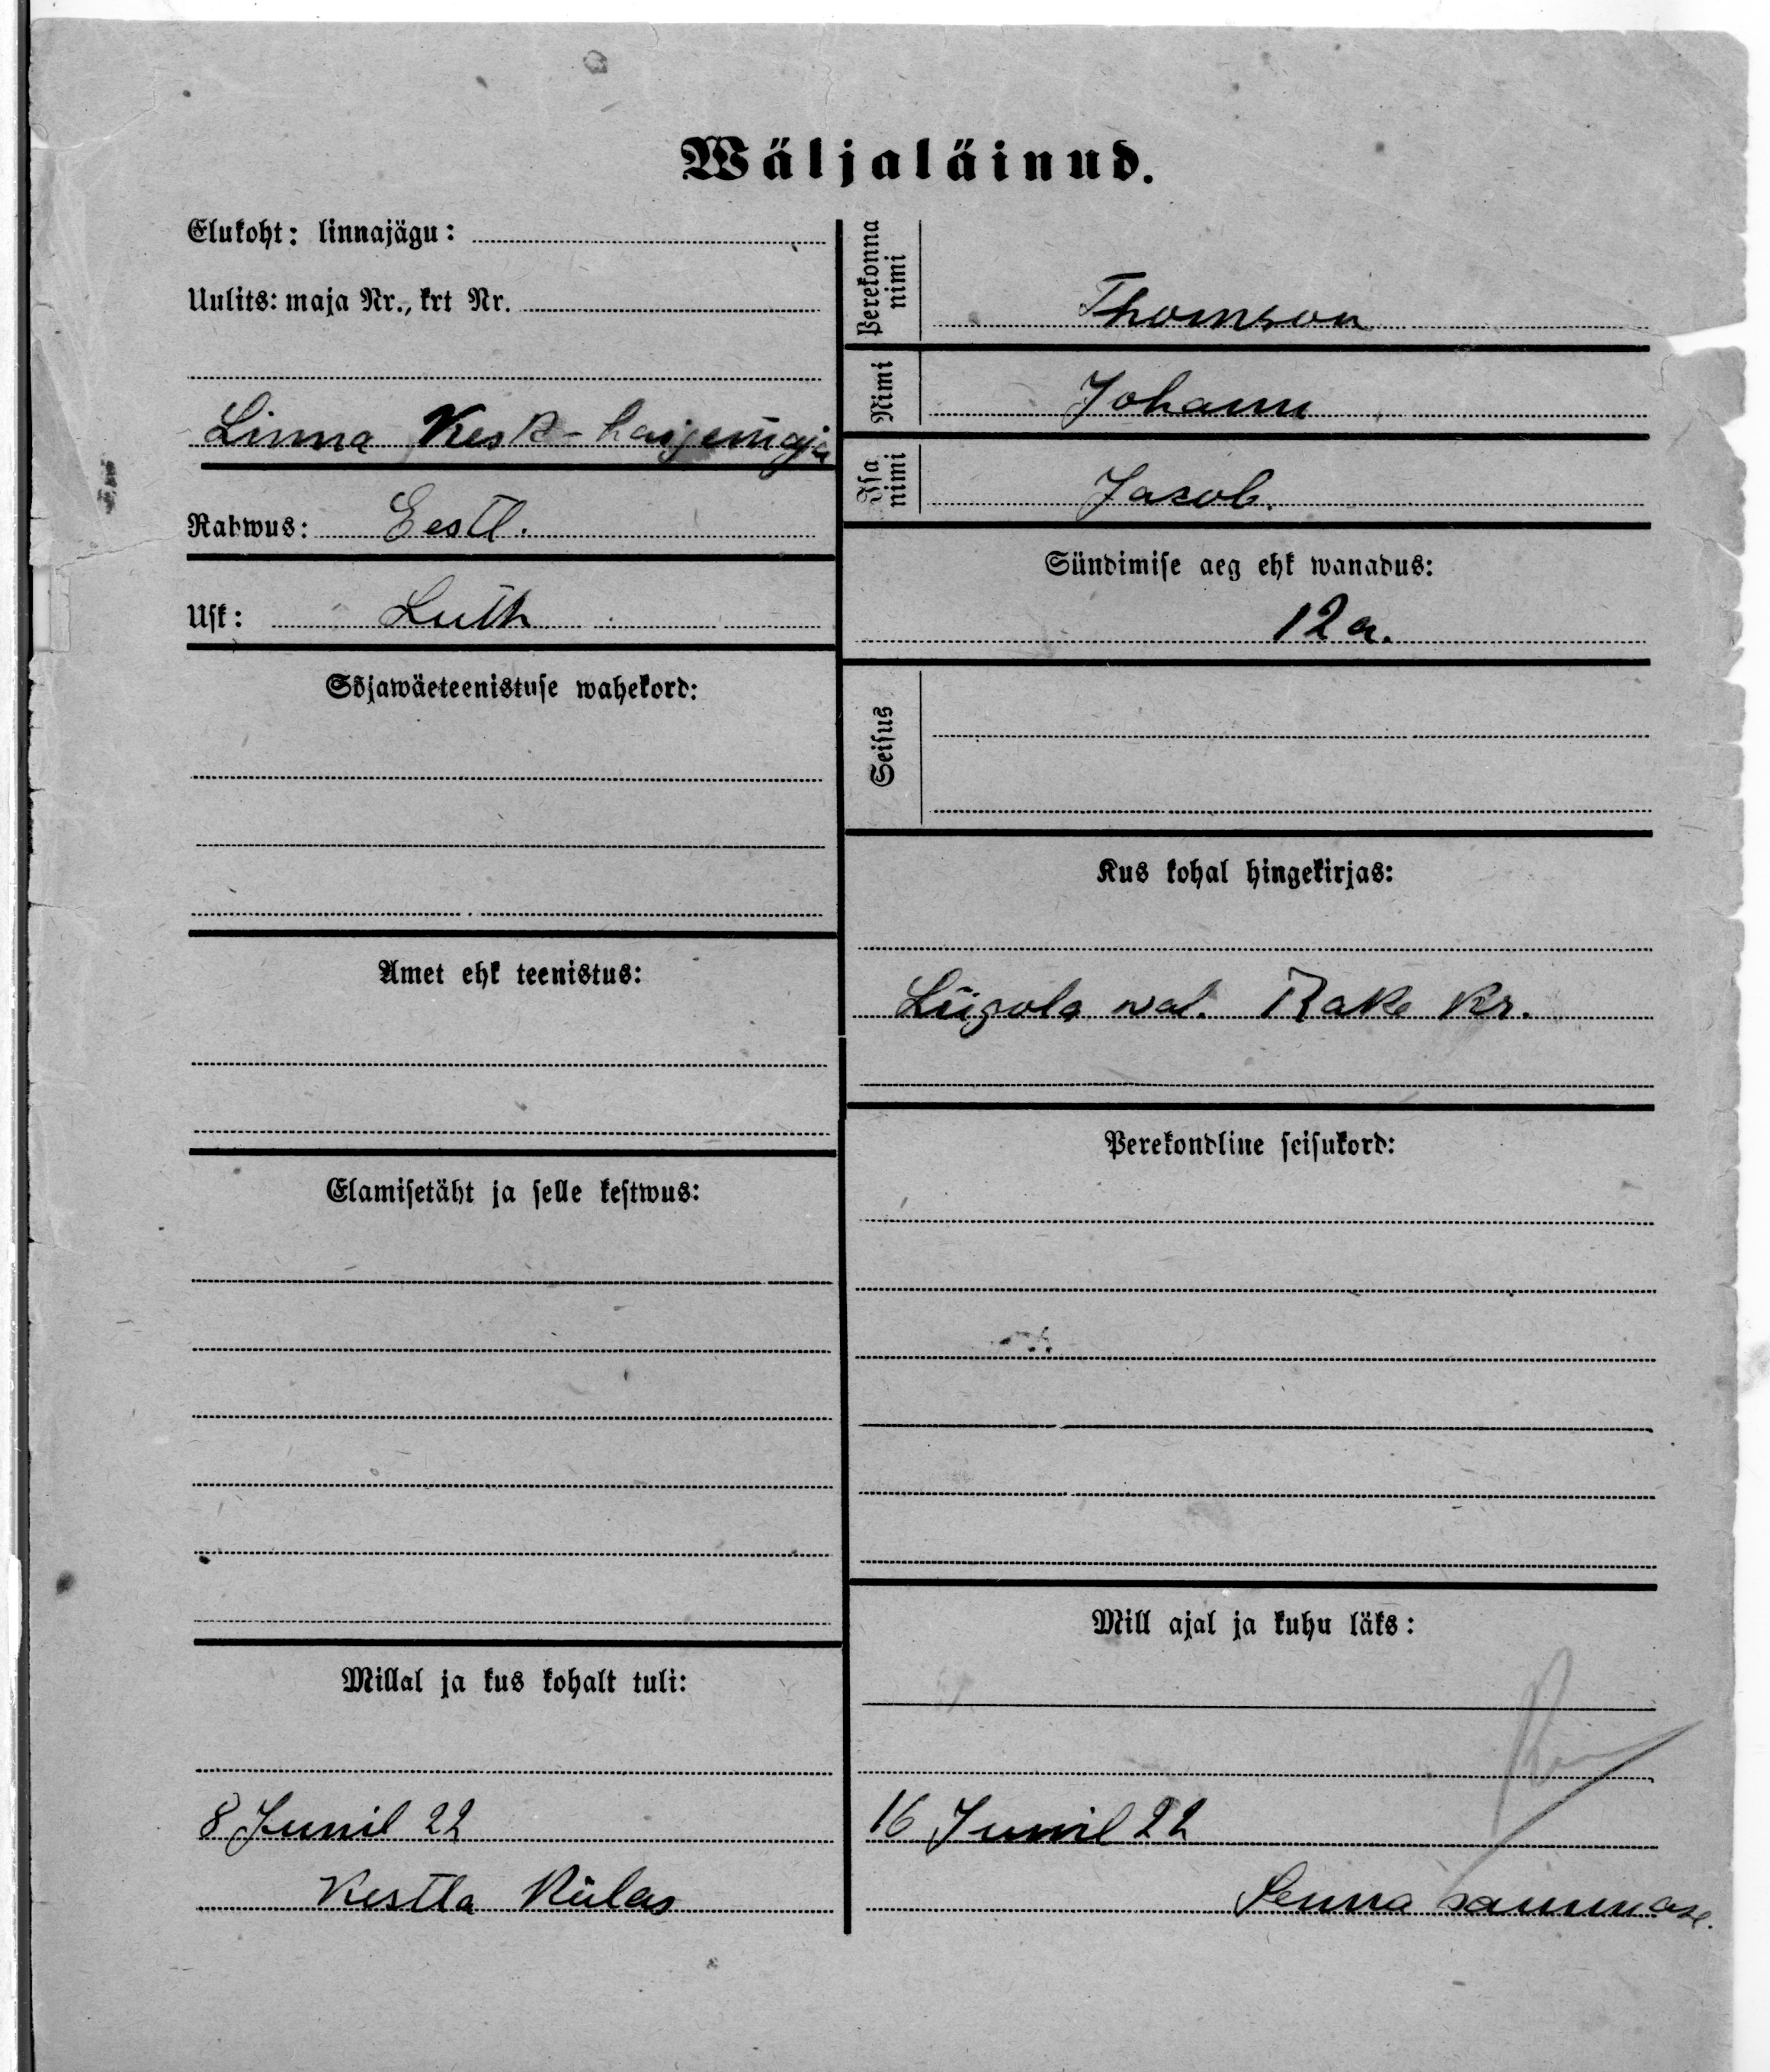 Wäljaläinud.
Elukoht: linnajägu:
Uulits: maja Nr., krt Nr.
Linna Kesk-haigemaja
Rahwus: Eestl.
Usk: Luth
Sõjawäeteenistuse wahekord:
Amet ehk teenistus:
Elamisetäht ja selle kestwus:
Millal ja kus kohalt tuli:
8 Junil 22
Kestla Külas
Perekonna nimi
Thomson
Nimi
Johann
Isa nimi
Jacob.
Sündimise aeg ehk wanadus:
12 a.
Seisus
Kus kohal hingekirjas:
wal. Rakw Kr.
Perekondline seisukord:
Mill ajal ja kuhu läks:
16 Junil 22
Senna sammase.